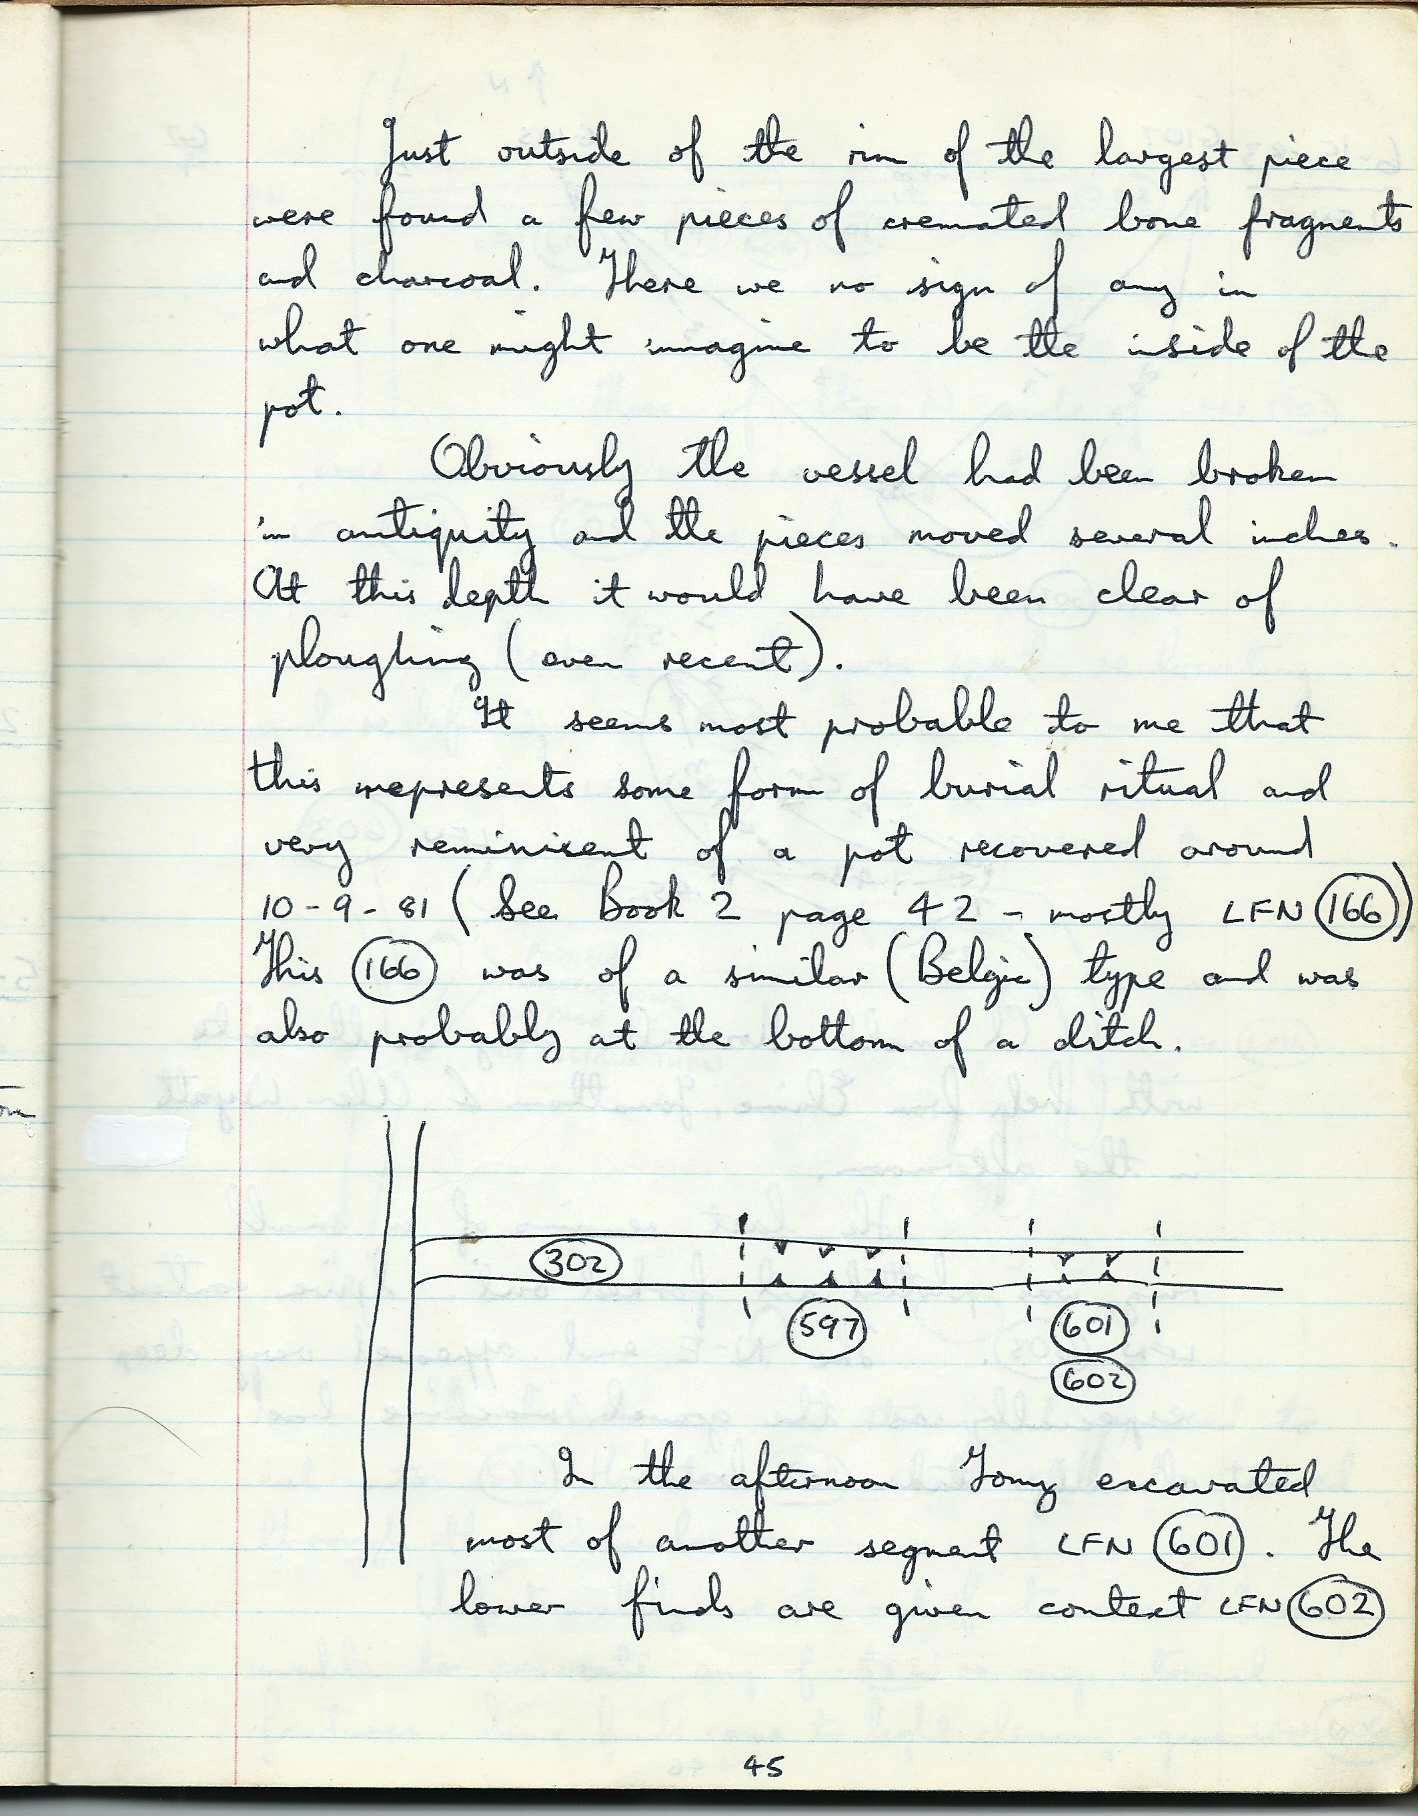 Just outside of the rim of the largest piece
were found a few pieces of cremated bone fragments
and charcoal. There we no sign of any in
what one might imagine to be the inside of the
pot.
Obviously the vessel had been broken
in antiquity and the pieces moved several inches.
At this depth it would have been clear of
ploughing (even recent).
It seems most probable to me that
this represents some form of burial ritual and
very reminisent of a pot recovered around
10-9-81 (See Book 2 page 42 - mostly LFN 166)
This 166 was of a similar (Belgic) type and was
also probably at the bottom of a ditch.
302
597
601
602
In the afternoon Tony excavated
most of another segment LFN 601. The
lower finds are given context LFN 602
45